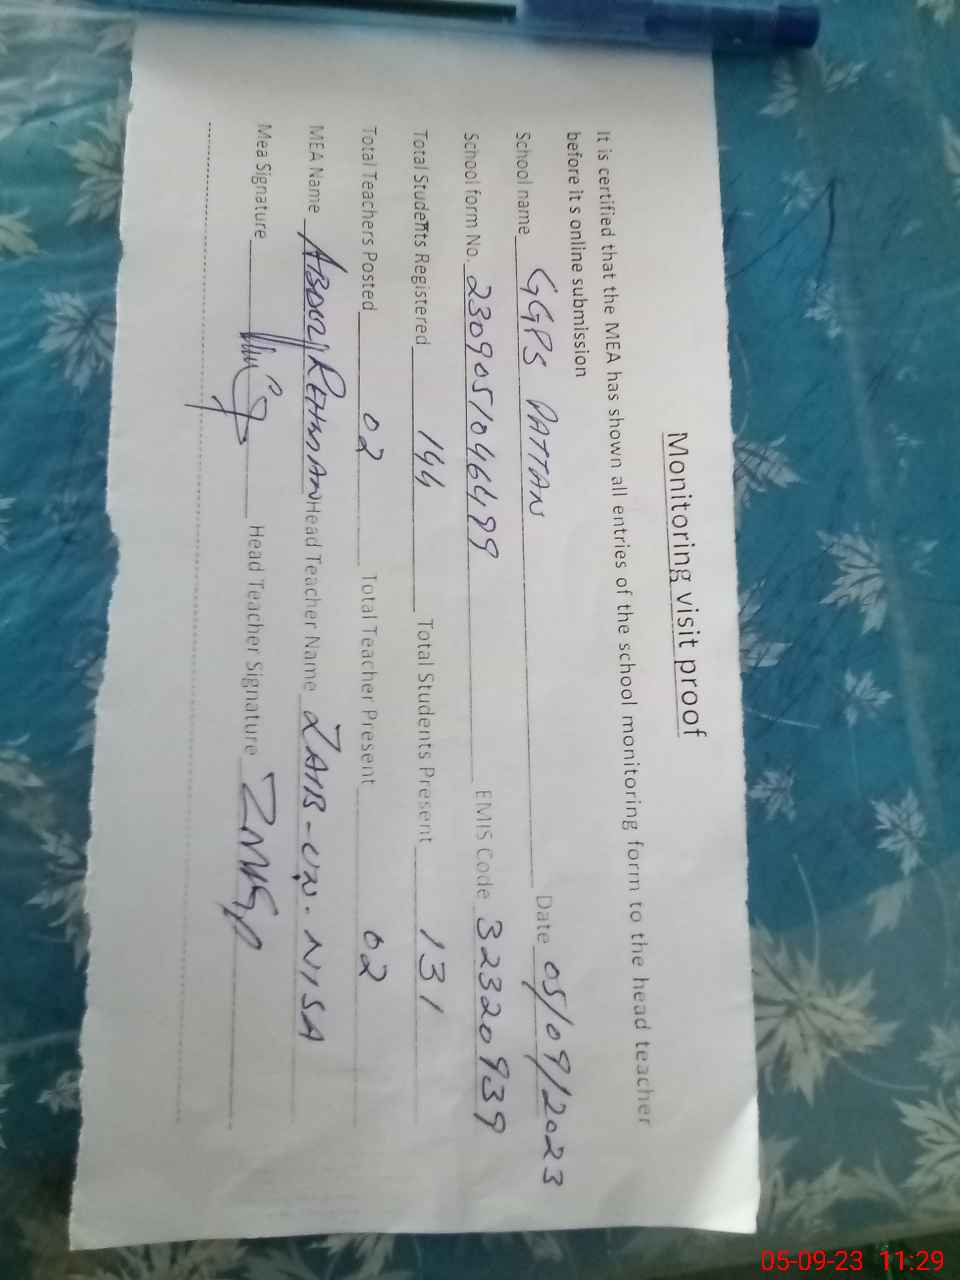 Monitoring visit proof
It is certified that the MEA has shown all entries of the school monitoring form to the head teacher
before it s online submission
School name GGPS PATTAN Date 05/09/2023
School form No. 230905/046499 EMIS Code 32320939
Total Students Registered 144 Total Students Present 131
Total Teachers Posted 02 Total Teacher Present 02
MEA Name ABDUL REHMAN Head Teacher Name ZAIB-UN-NISA
Mea Signature Head Teacher Signature
05-09-23 11:29